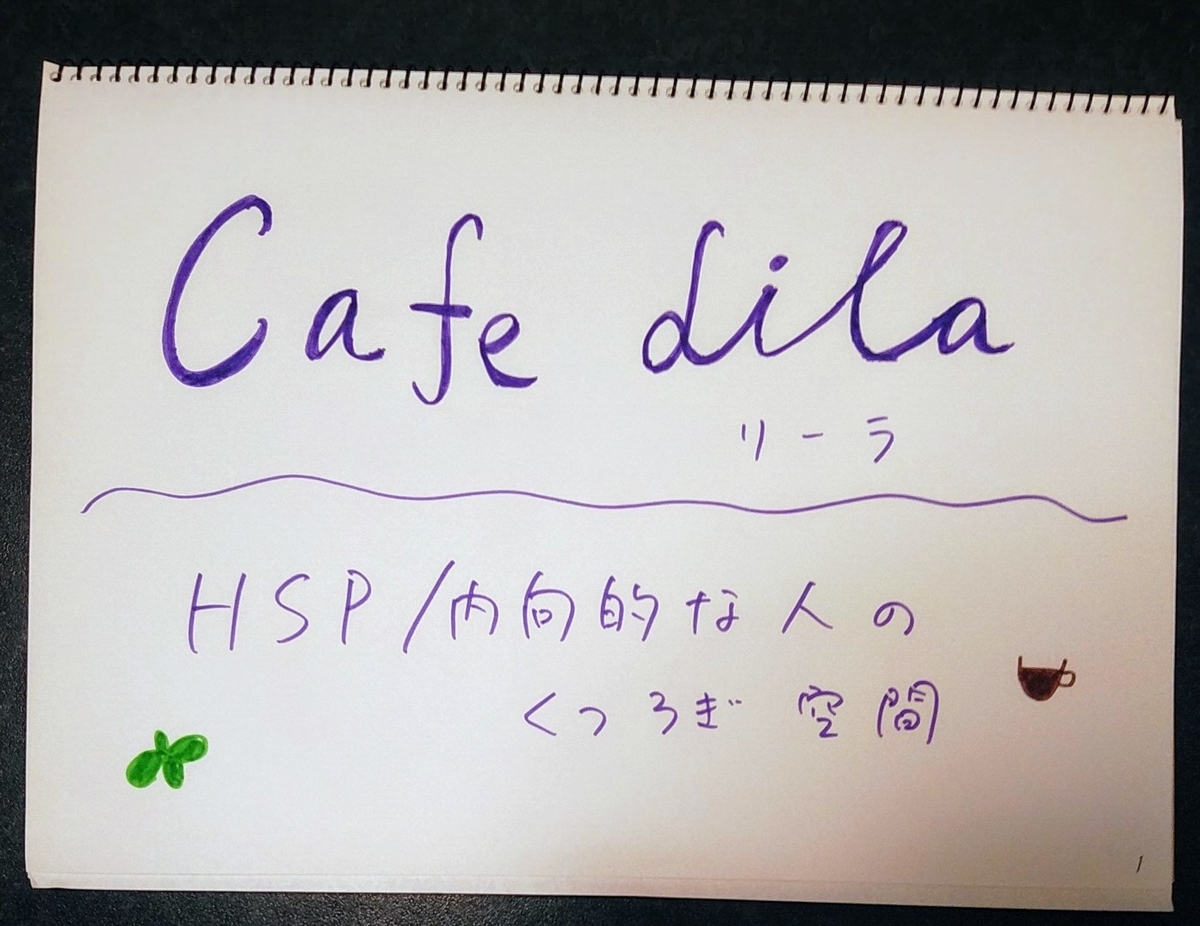 Cafe Lila
リーラ
HSP/内向的な人の
くつろぎ空間
1